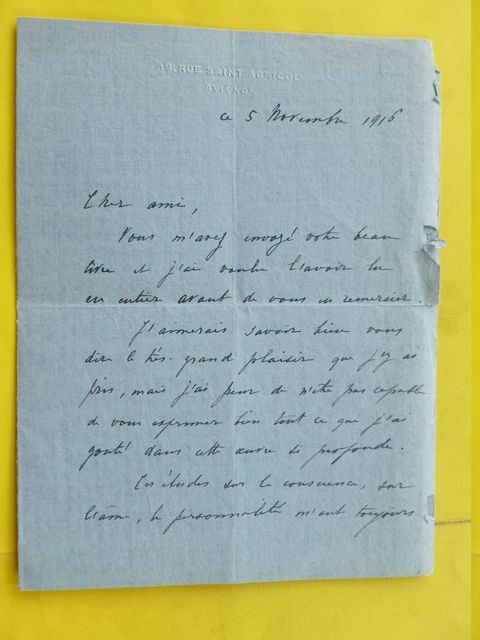 19, RUE SAINT AGRICOL
AVIGNON
ce 5 Novembre 1916
Cher ami,
Vous m'avez envoyé votre beau
livre et j'ai voulu l'avoir lu
en entier avant de vous en remercier.
J'aimerais savoir bien vous
dire le très-grand plaisir que j'y ai
pris, mais j'ai peur de n'être pas capable
de vous exprimer bien tout ce que j'ai
gouté dans cette œuvre si profonde.
Ces études sur la conscience, sur
l'âme, la personnalité m'ont toujours